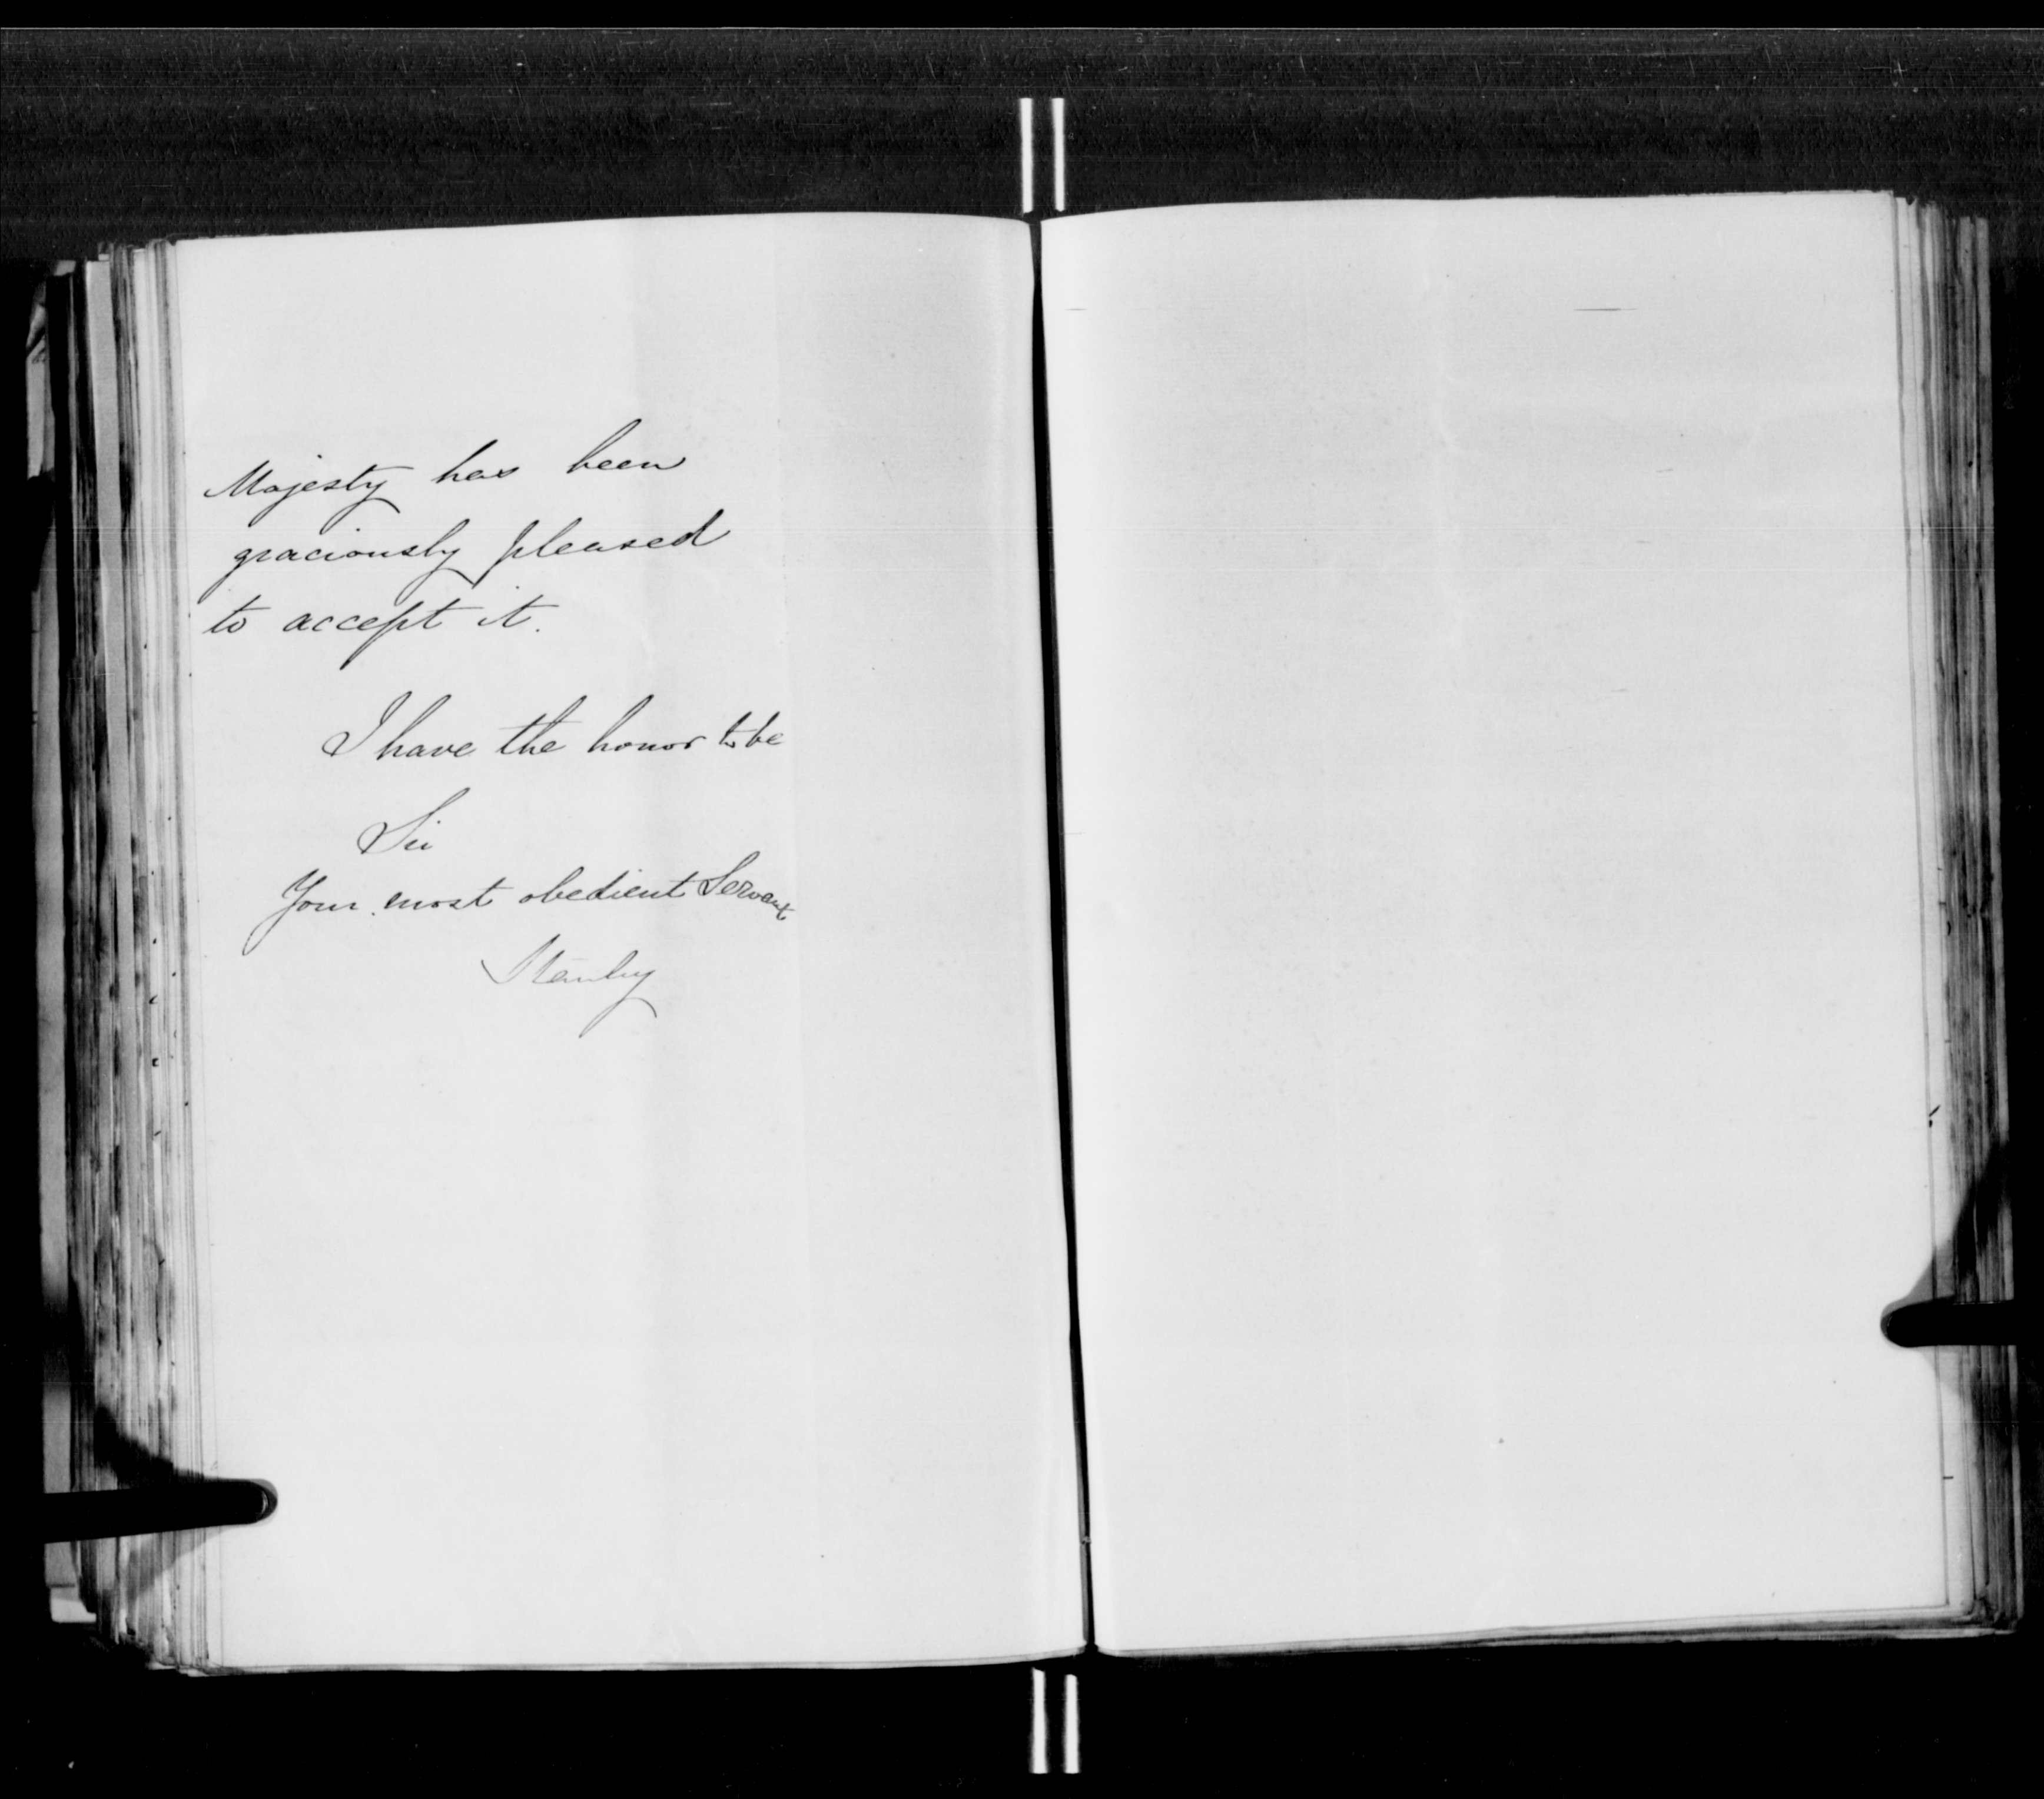 Majesty has been
graciously pleased
to accept it.
I have the honor to be
Sir
Your most obedient Servant
Stanley